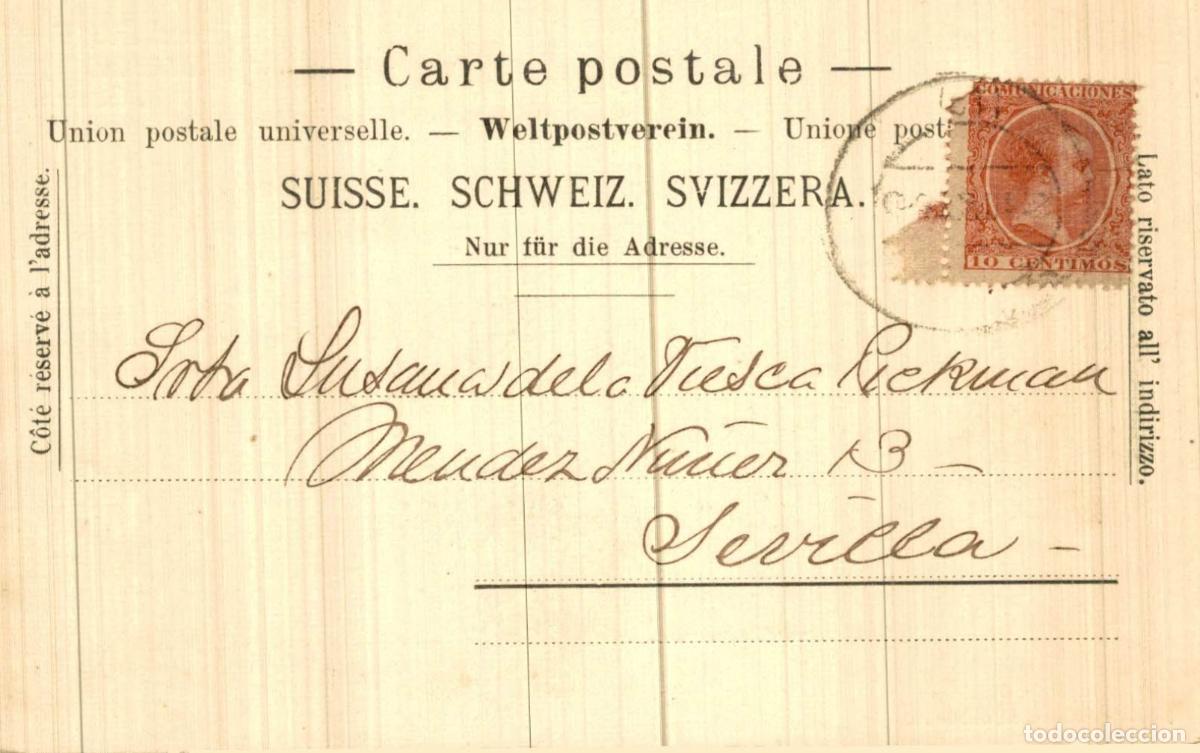 — Carte postale —
Union postale universelle. — Weltpostverein. — Unione post
SUISSE. SCHWEIZ. SVIZZERA.
Nur für die Adresse.
COMUNICACIONES
10 CENTIMOS
Côté réservé à l'adresse.
Lato riservato all' indirizzo.
Srta Susana de la Viesca Pickman
Mendez Nuñez 13 —
Sevilla —
todocoleccion